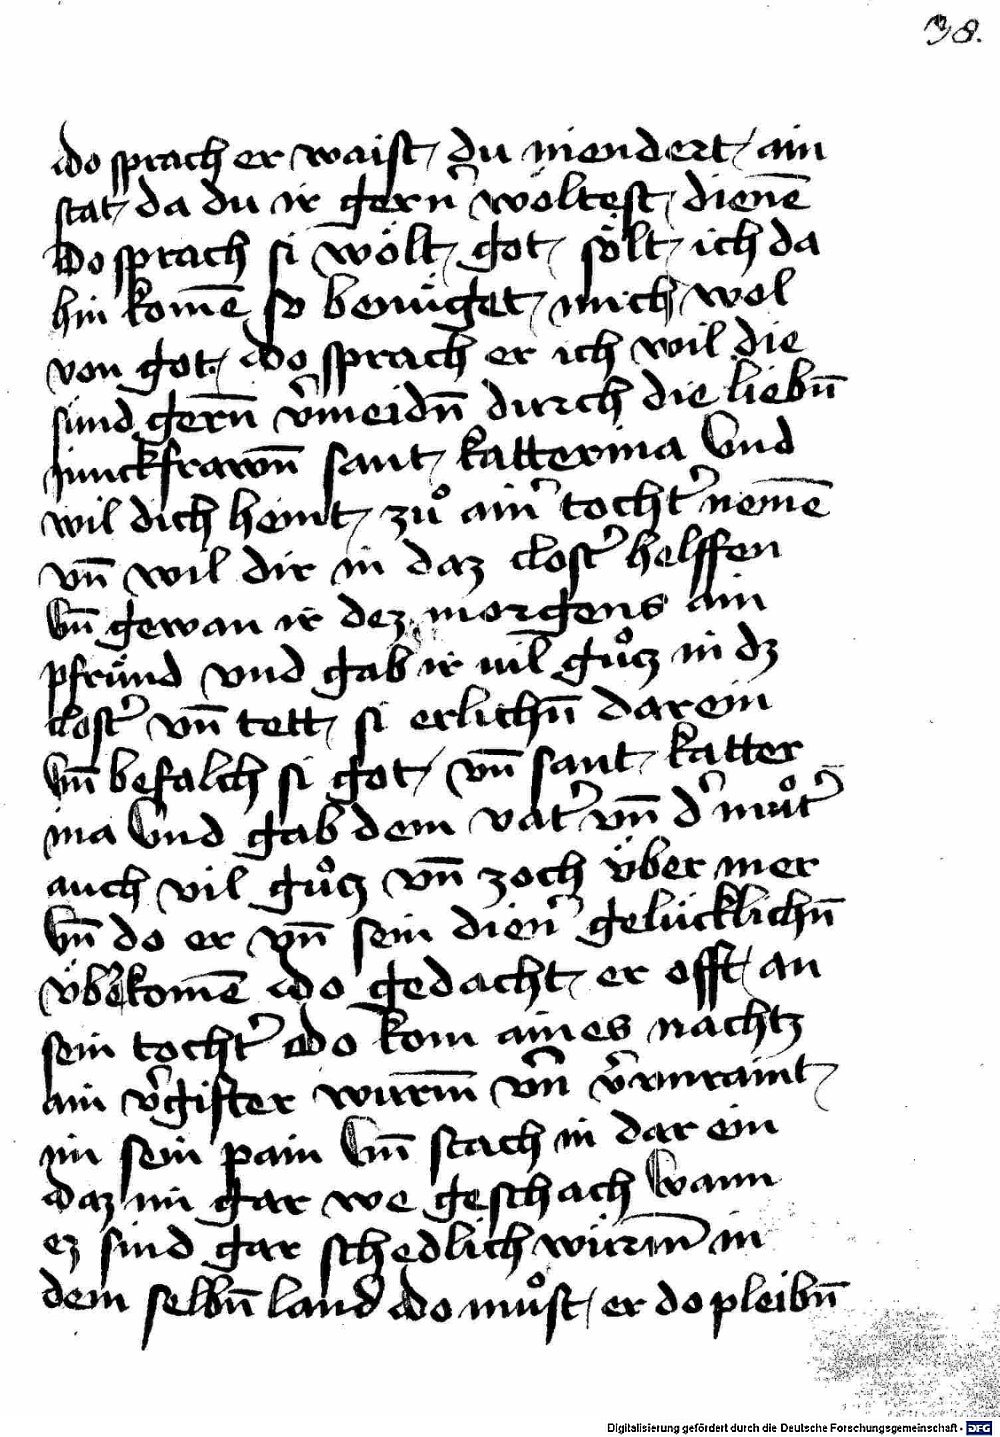 38.
do sprach er waist du niendert ain
stat da du ir gern̄ wöltest dienē
Do sprach si wölt got sölt ich da
hin komē so benüget mich wol
von got do sprach er ich wil die
sünd gern̄ v̾meidn̄ durch die liebn̄
junckfrawn̄ sant katterina Vnd
wil dich heint zů ain̾ tocht̾ nemē
vn̄ wil dir in daz clost̾ helffen
Vn̄ gewan ir dez morgens ain
pfründ vnd gab ir vil gůtz in dz
clost̾ vn̄ tett si erlichn̄ darein
Vn̄ befalch si got vn̄ sant katter
ina Vnd gab dem vat̾ vn̄ d̾ můt̾
auch vil gůtz vn̄ zoch über mer
Vn̄ do er vn̄ sein dien̾ gelücklichn̄
überkomē do gedacht er offt an
sein tocht̾ do kom aines nachtz
ain v̾gifter wurm̄ vn̄ v̾vnraint
im sein pain Vn̄ stach in dar ein
daz im gar we geschach Wann
ez sind gar schedlich würm̄ in
dem selbn̄ land do můst er do pleibn̄
Digitalisierung gefördert durch die Deutsche Forschungsgemeinschaft - DFG